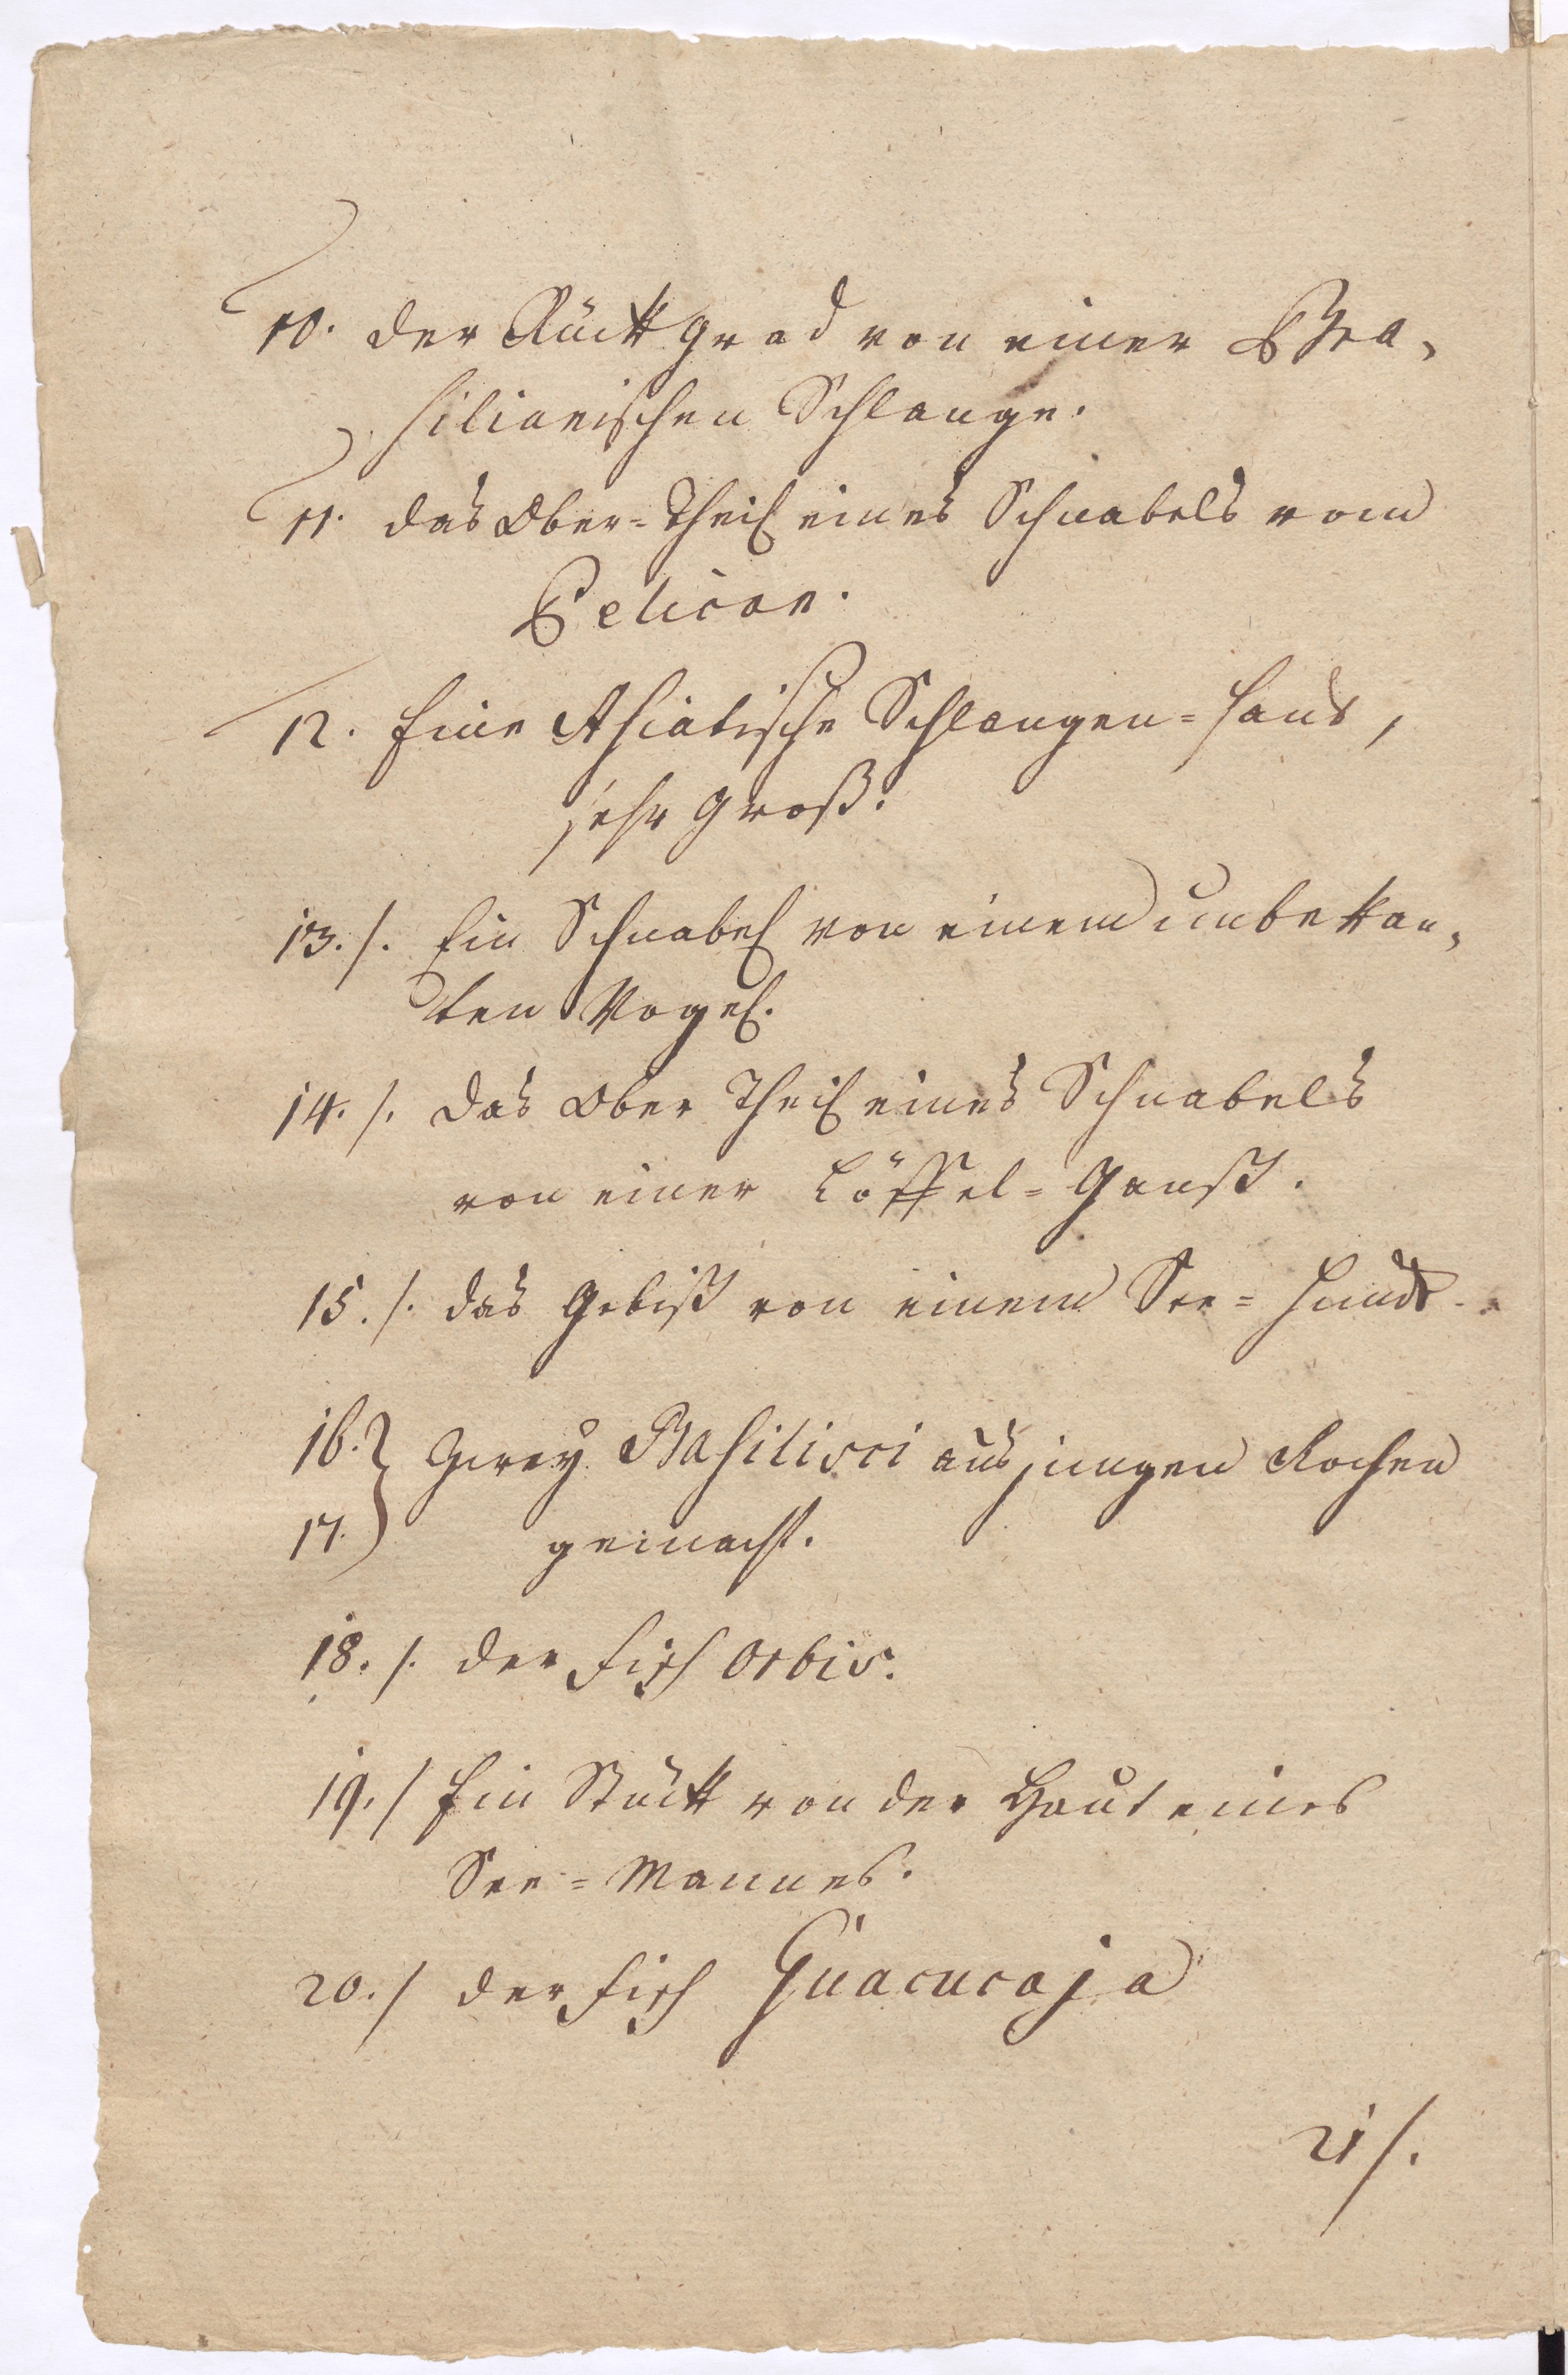 10. der Rückgrad von einer Bra-
silianischen Schlange.
11. das Ober=Theil eines Schnabels vom
Pelican.
12. Eine Asiatische Schlangen=Haut,
sehr groß.
13./. Ein Schnabel von einem unbekan-
ten Vogel.
14./. das Ober Theil eines Schnabels
von einer Löffel=Ganß.
15./. das Gebiß von einem See=Hund.
16. } Zwey Basilisci aus jungen Rochen
17. } gemacht.
18./. der Fisch Orbis.
19./ Ein Stück von der Haut eines
See=Mannes.
20./ der Fisch Guacucaja
21/.